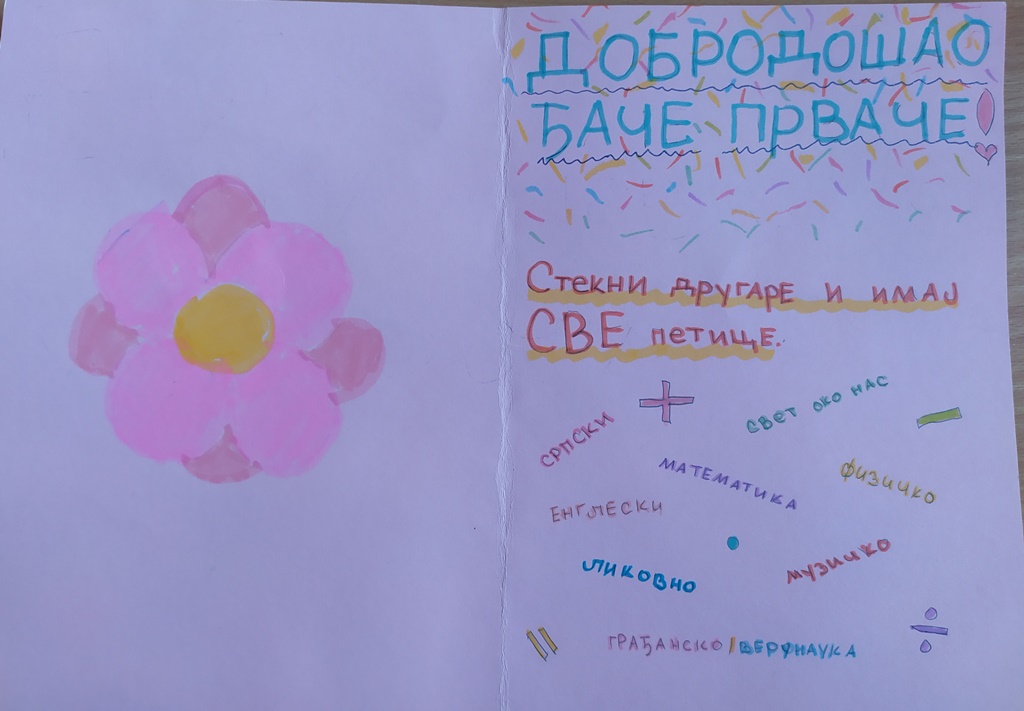 ДОБРОДОШАО
ЂАЧЕ ПРВАЧЕ!
Стекни другаре и имај
СВЕ петице.
СРПСКИ
+
СВЕТ ОКО НАС
–
МАТЕМАТИКА
ФИЗИЧКО
ЕНГЛЕСКИ
•
ЛИКОВНО
МУЗИЧКО
=
ГРАЂАНСКО/ВЕРУНАУКА
÷